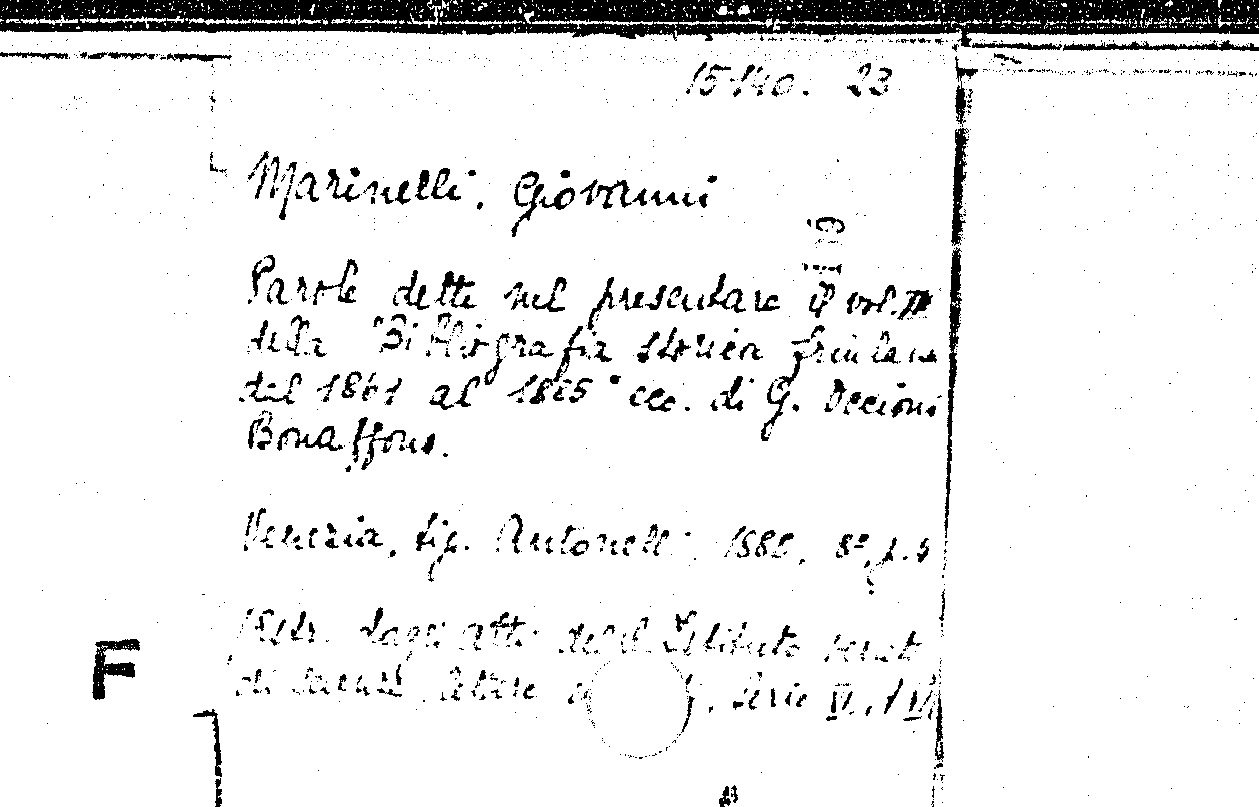 15140. 23
Marinelli, Giovanni
109
Parole dette nel presentare il vol. III
della "Bibliografia storica friulana
dal 1861 al 1885" ecc. di G. Occioni
Bonaffons.
Venezia, tip. Antonelli, 8°, p.
(Estr. dagli Atti del R. Istituto veneto
di scienze, lettere Serie VI, t
F